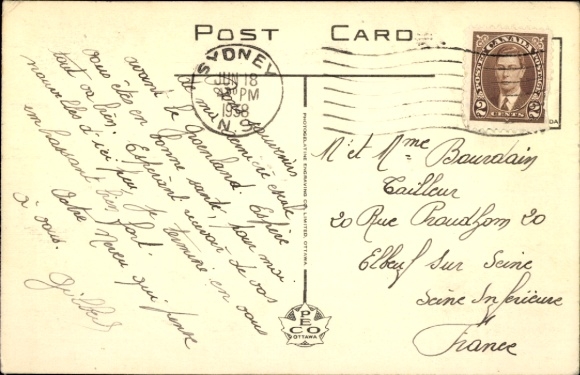 POST CARD
SYDNEY
JUN 18
PM
1938
N.S.
POSTES CANADA POSTAGE
2 CENTS 2
Souvenirs
de ma
avant le Groenland. Espère
vous êtes en bonne santé, pour moi
tout va bien. Espérant recevoir de vos
nouvelles d'ici peu je termine en vous
embrassant bien fort.
Votre Neveu qui pense
à vous.
Gilbert
PHOTOGELATINE ENGRAVING CO. LIMITED, OTTAWA
PECO
OTTAWA
Mr et Mme Bourdain
Tailleur
20 Rue Proudhom 20
Elbeuf sur Seine
Seine Inférieure
France